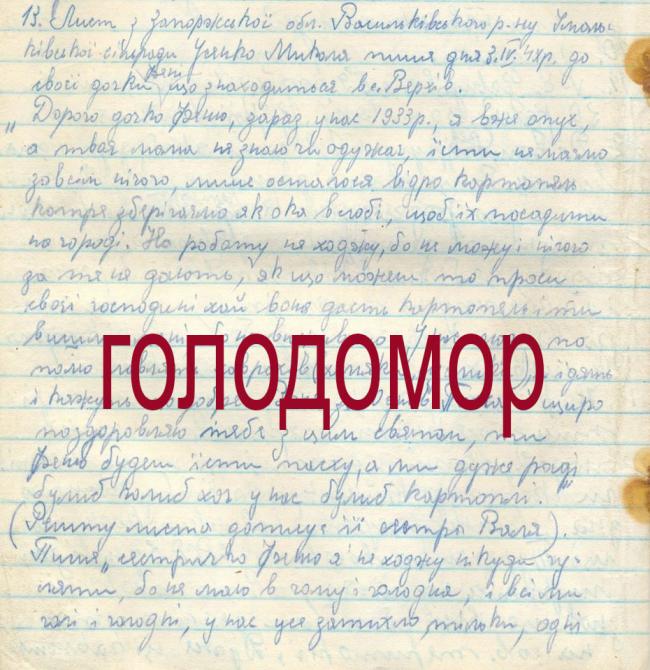 13. Лист з Запоржської обл. Васильківського р-ну
ківської сільради Усенко Микола пише дня 3.IV. 47р. до
своєї дочки Фені що знаходиться в с. Верхів.
„Дорого дочко Феню, зараз у нас 1933р., я вже опух,
а твоя мама не знаю чи одужає, їсти не маємо
зовсім нічого, лише осталося відро картопель
котре зберігаємо як ока в лобі, щоб їх посадити
на городі. На роботу не ходжу, бо не можу і нічого
за те не дають, як що можеш то проси
своєї господині хай вона дасть картопель і ти
по
голодомор
полю ловлять ховрахів і їдять
і кажуть щиро
поздоровляю тебе з цим святом, ти
Феню будеш їсти паску, а ми дуже раді
булиб колиб хоч у нас булиб картоплі."
(Решту листа дописує її сестра Валя).
Пише „сестричко Феню я не ходжу нікуди гу-
ляти, бо не маю в чому і голодна, і всі ми
голі і голодні, у нас усе затихло, тільки одні